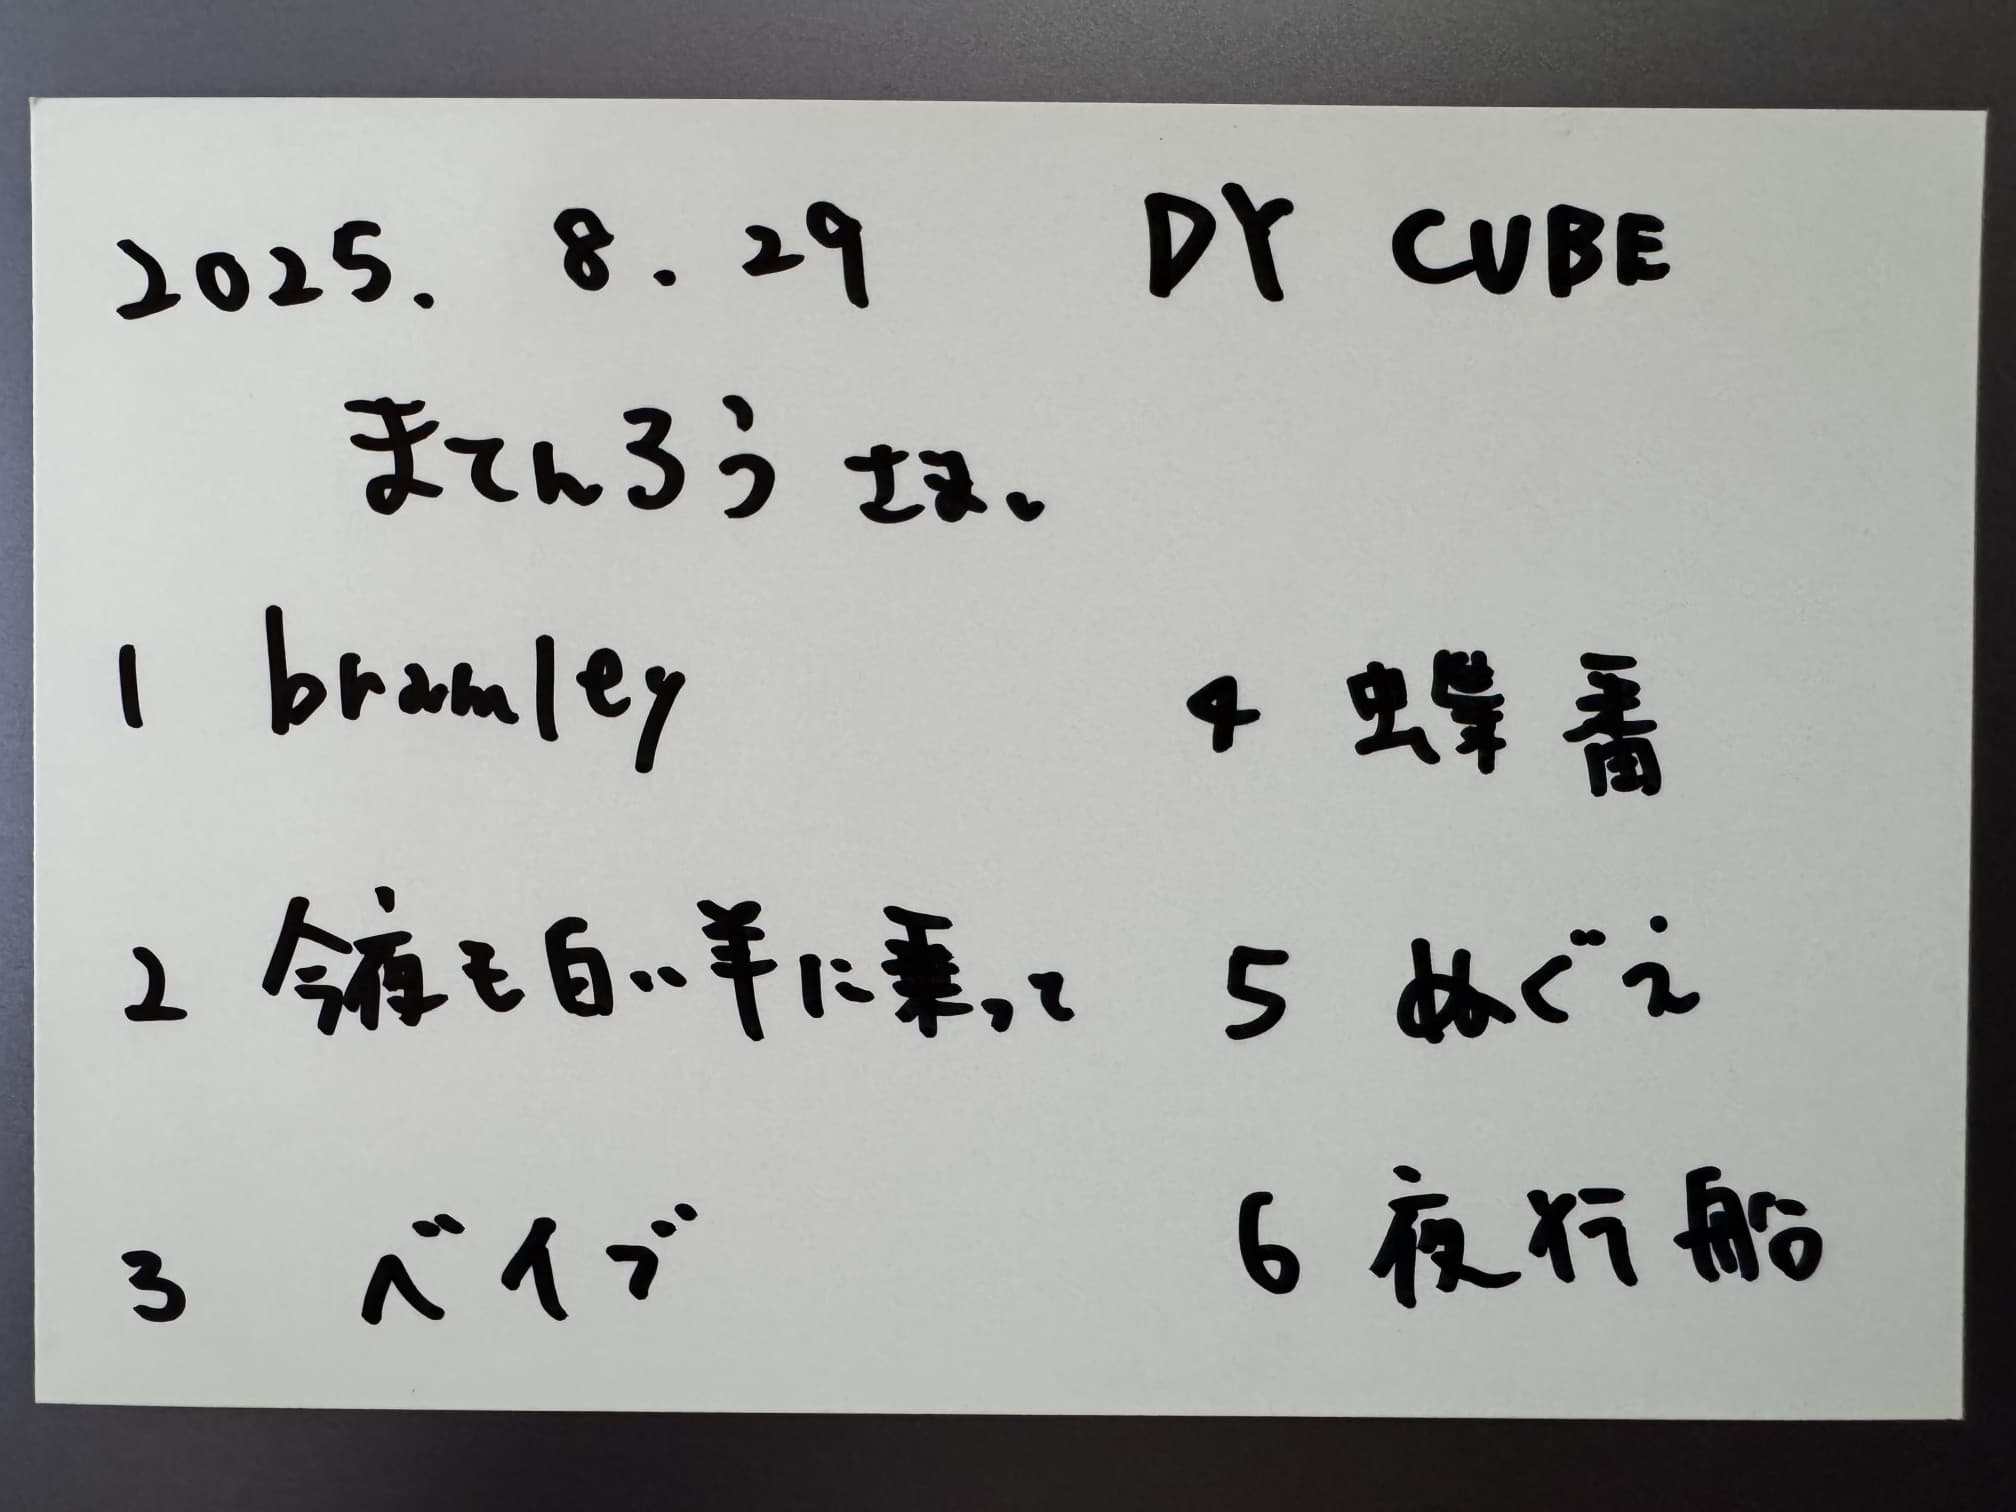 2025. 8. 29 DY CUBE
まてんろう さま。
1 bramley
2 今夜も白い羊に乗って
3 ベイブ
4 蝶番
5 ぬぐえ
6 夜行船